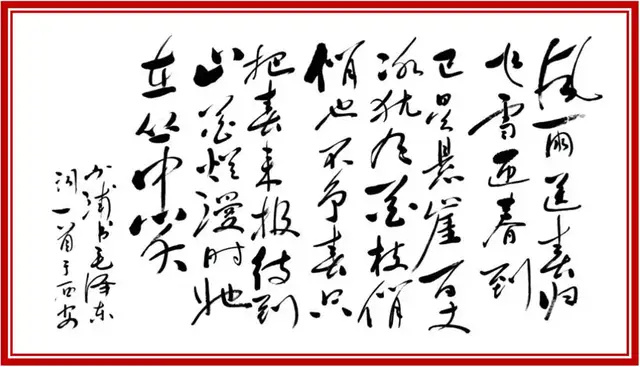 风雨送春归
飞雪迎春到
已是悬崖百丈
冰犹有花枝俏
俏也不争春只
把春来报待到
山花烂漫时她
在丛中笑
浦书毛泽东
词一首于西安